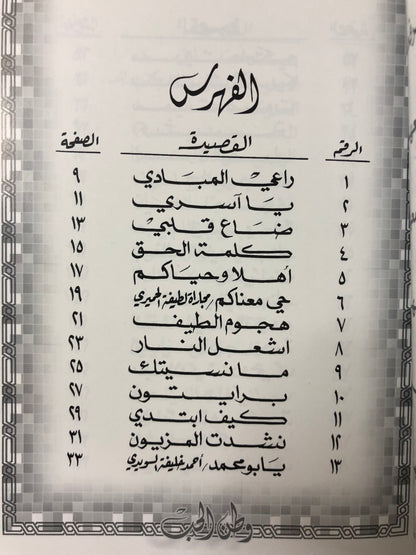 الفهرس
الرقم القصيدة الصفحة
١ راعي المبادي ٩
٢ يا آسري ١١
٣ ضاع قلبي ١٣
٤ كلمة الحق ١٥
٥ أهلا وحياكم ١٧
٦ حي معناكم / مجاراة لطيفة الحميري ١٩
٧ هجوم الطيف ٢١
٨ اشعل النار ٢٣
٩ ما نسيتك ٢٥
١٠ برايتون ٢٧
١١ كيف ابتدي ٢٩
١٢ نشدت المزيون ٣١
١٣ يا بو محمد / أحمد خليفة لسويدي ٣٣
وطن الحب